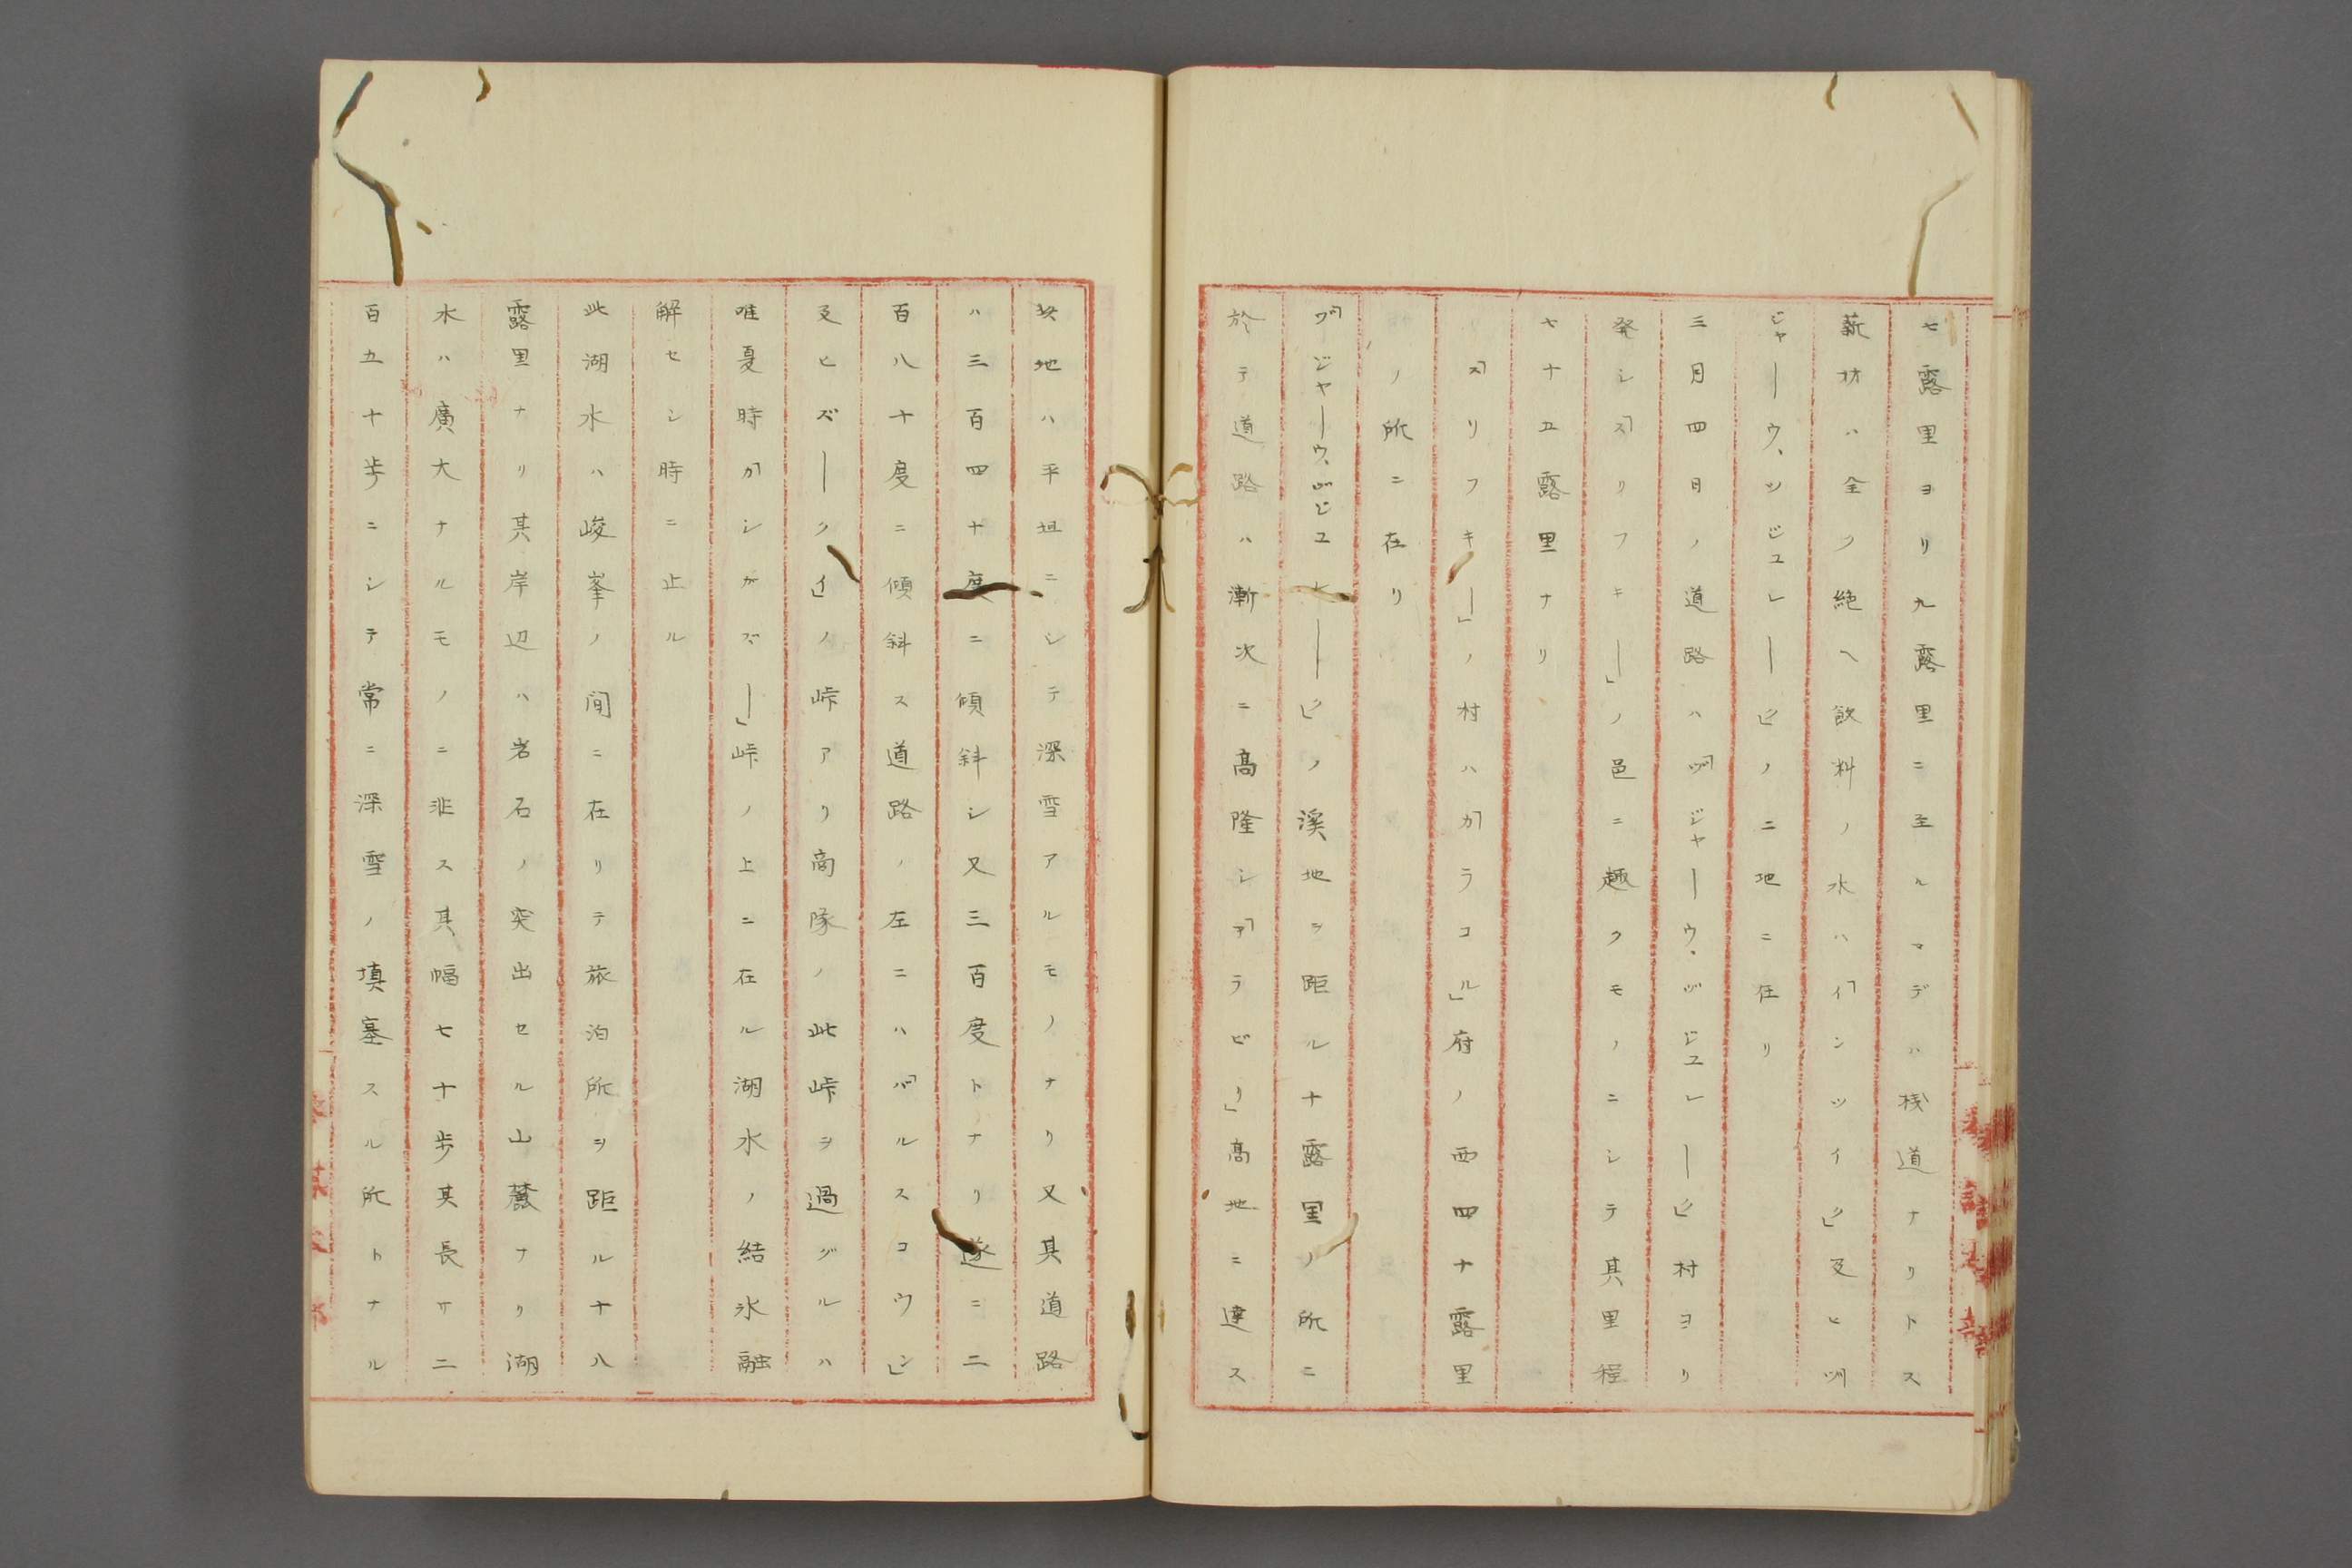 七露里ヨリ九露里ニ至ルマデハ棧道ナリトス
薪材ハ全ク絶ヘ飲料ノ水ハ「インツイピ」及ヒ「ヅ
ジャーウ、ツジユレーピノ二地ニ在リ
三月四日ノ道路ハ「ヅジャーウ、ヅジユレーピ村ヨリ
発シ「スリフキー」ノ邑ニ趣クモノニシテ其里程
七十五露里ナリ
「スリフキー」ノ村ハ「カラコル」府ノ西四十露里
ノ所ニ在リ
「ヅジャーウ、ヅジユレーピノ溪地ヲ距ル十露里ノ所ニ
於テ道路ハ漸次ニ高隆シ「アラビリ」高地ニ達ス
此地ハ平坦ニシテ深雪アルモノナリ又其道路
ハ三百四十度ニ傾斜シ又三百度トナリ遂ニ二
百八十度ニ傾斜ス道路ノ左ニハ「バルスコウン」
及ヒズークイ」ノ峠アリ商隊ノ此峠ヲ過グルハ
唯夏時「カシガズー」峠ノ上ニ在ル湖水ノ結氷融
解セシ時ニ止ル
此湖水ハ峻峯ノ間ニ在リテ旅泊所ヲ距ル十八
露里ナリ其岸辺ハ岩石ノ突出セル山麓ナリ湖
水ハ廣大ナルモノニ非ス其幅七十歩其長サ二
百五十歩ニシテ常ニ深雪ノ填塞スル所トナル